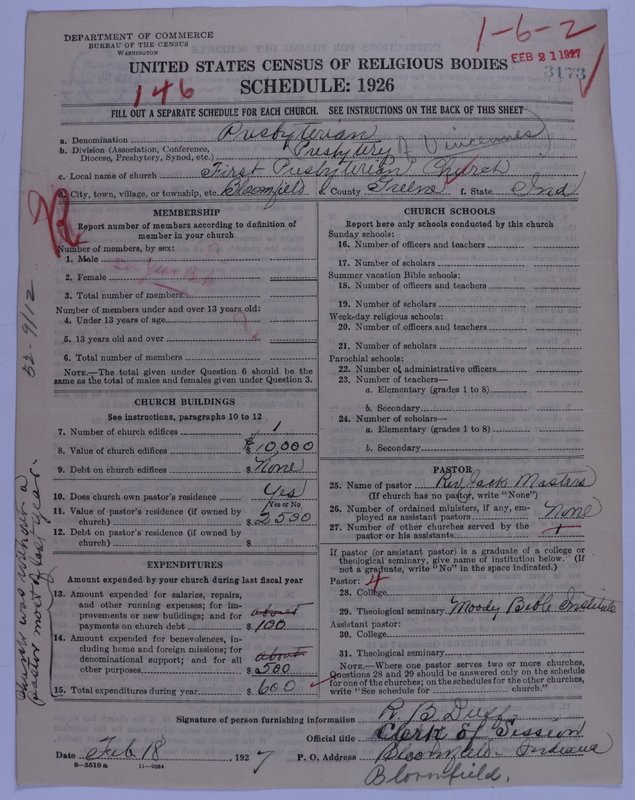 DEPARTMENT OF COMMERCE
BUREAU OF THE CENSUS
WASHINGTON
1-6-2
FEB 21 1927
3173
UNITED STATES CENSUS OF RELIGIOUS BODIES
SCHEDULE: 1926
146
FILL OUT A SEPARATE SCHEDULE FOR EACH CHURCH. SEE INSTRUCTIONS ON THE BACK OF THIS SHEET
a. Denomination Presbyterian
b. Division (Association, Conference, Diocese, Presbytery, Synod, etc.) Presbytery of Vincennes
c. Local name of church First Presbyterian Church
City, town, village, or township, etc. Bloomfield e. County Greene f. State Ind
MEMBERSHIP
Report number of members according to definition of
member in your church
Number of members, by sex:
1. Male
2. Female
3. Total number of members
Number of members under and over 13 years old:
4. Under 13 years of age
5. 13 years old and over
6. Total number of members
NOTE.—The total given under Question 6 should be the
same as the total of males and females given under Question 3.
CHURCH BUILDINGS
See instructions, paragraphs 10 to 12
7. Number of church edifices 1
8. Value of church edifices $ 10,000
9. Debt on church edifices $ None
10. Does church own pastor's residence Yes
Yes or No
11. Value of pastor's residence (if owned by
church) $ 2,500
12. Debt on pastor's residence (if owned by
church) $
EXPENDITURES
Amount expended by your church during last fiscal year
13. Amount expended for salaries, repairs,
and other running expenses; for im-
provements or new buildings; and for about
payments on church debt $ 100
14. Amount expended for benevolences, in-
cluding home and foreign missions; for
denominational support; and for all about
other purposes $ 500
15. Total expenditures during year $ 600
52-9/12
Church was without a
pastor most of last year.
CHURCH SCHOOLS
Report here only schools conducted by this church
Sunday schools:
16. Number of officers and teachers
17. Number of scholars
Summer vacation Bible schools:
18. Number of officers and teachers
19. Number of scholars
Week-day religious schools:
20. Number of officers and teachers
21. Number of scholars
Parochial schools:
22. Number of administrative officers
23. Number of teachers—
a. Elementary (grades 1 to 8)
b. Secondary
24. Number of scholars—
a. Elementary (grades 1 to 8)
b. Secondary
PASTOR
25. Name of pastor Rev. Jack Masters
(If church has no pastor, write "None")
26. Number of ordained ministers, if any, em-
ployed as assistant pastors None
27. Number of other churches served by the
pastor or his assistants
If pastor (or assistant pastor) is a graduate of a college or
theological seminary, give name of institution below. (If
not a graduate, write "No" in the space indicated.)
Pastor: 4
28. College
29. Theological seminary Moody Bible Institute
Assistant pastor:
30. College
31. Theological seminary
NOTE.—Where one pastor serves two or more churches,
Questions 28 and 29 should be answered only on the schedule
for one of the churches; on the schedules for the other churches,
write "See schedule for church."
Signature of person furnishing information R B
Official title Clerk of Session
Date Feb 18 1927 P. O. Address Bloomfield Indiana
8—5518 a 11—9864
Bloomfield.